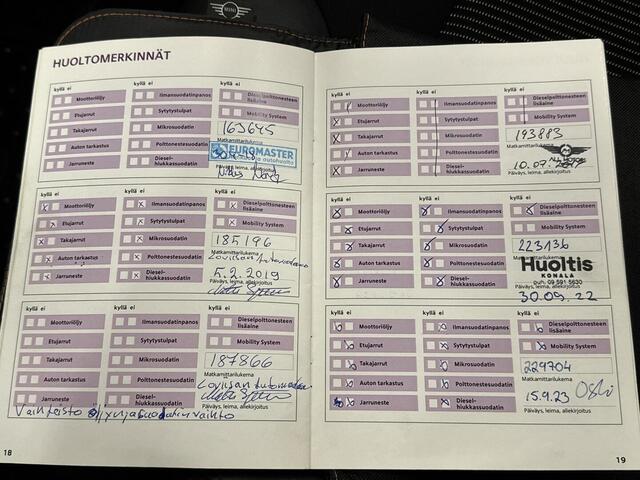 MINI
HUOLTOMERKINNÄT
kyllä ei
kyllä ei
kyllä ei
Moottoriöljy
Ilmansuodatinpanos
Dieselpolttonesteen lisäaine
Etujarrut
Sytytystulpat
Mobility System
Takajarrut
Mikrosuodatin
163645
Matkamittarilukema
Auton tarkastus
Polttonestesuodatin
EUROMASTER
Jarruneste
Diesel-hiukkassuodatin
kyllä ei
kyllä ei
kyllä ei
Moottoriöljy
Ilmansuodatinpanos
Dieselpolttonesteen lisäaine
Etujarrut
Sytytystulpat
Mobility System
Takajarrut
Mikrosuodatin
185196
Matkamittarilukema
Auton tarkastus
Polttonestesuodatin
5.2.2019
Jarruneste
Diesel-hiukkassuodatin
Päiväys, leima, allekirjoitus
kyllä ei
kyllä ei
kyllä ei
Moottoriöljy
Ilmansuodatinpanos
Dieselpolttonesteen lisäaine
Etujarrut
Sytytystulpat
Mobility System
Takajarrut
Mikrosuodatin
187866
Matkamittarilukema
Auton tarkastus
Polttonestesuodatin
Loviisan
Jarruneste
Diesel-hiukkassuodatin
Päiväys, leima, allekirjoitus
Vaihteisto öljynjasuodatinvaihto
18
kyllä ei
kyllä ei
kyllä ei
Moottoriöljy
Ilmansuodatinpanos
Dieselpolttonesteen lisäaine
Etujarrut
Sytytystulpat
Mobility System
Takajarrut
Mikrosuodatin
193883
Matkamittarilukema
Auton tarkastus
Polttonestesuodatin
Jarruneste
Diesel-hiukkassuodatin
10.07.
kyllä ei
kyllä ei
kyllä ei
Moottoriöljy
Ilmansuodatinpanos
Dieselpolttonesteen lisäaine
Etujarrut
Sytytystulpat
Mobility System
Takajarrut
Mikrosuodatin
223136
Matkamittarilukema
Auton tarkastus
Polttonestesuodatin
Huoltis
KONALA
Jarruneste
Diesel-hiukkassuodatin
puh. 09 591 5630
30.09.22
kyllä ei
kyllä ei
kyllä ei
Moottoriöljy
Ilmansuodatinpanos
Dieselpolttonesteen lisäaine
Etujarrut
Sytytystulpat
Mobility System
Takajarrut
Mikrosuodatin
229704
Matkamittarilukema
Auton tarkastus
Polttonestesuodatin
15.9.23
Jarruneste
Diesel-hiukkassuodatin
Päiväys, leima, allekirjoitus
19